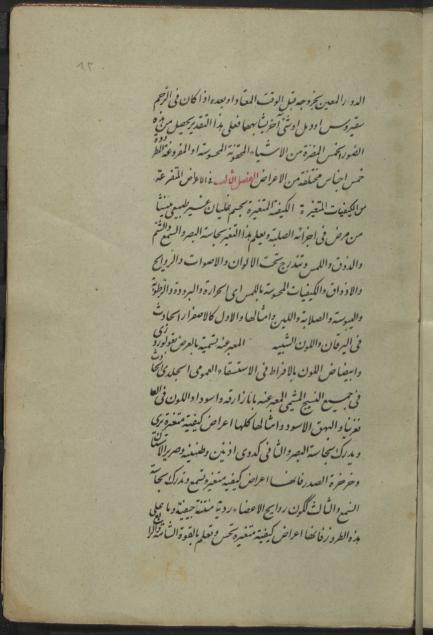 الدور المعين بخروجه قبل الوقت المعتاد او بعده اذا كان فى الرحم
سقيروس او ورم او شئ آخر يشابهها فعلى هذا التقدير يحصل من هذه
الصور الخمس المنفرة من الاشياء المحقونة المحبوسة او المفروغة
خمس اجناس مختلفة من الاعراض الفصل الثالث فى الاعراض المتفرعة
من الكيفيات المتغيرة الكيفية المتغيرة بجسم غليان غير طبيعى حينئذ
من مرض فى اجزائه الصلبة ويعلم هذا التغير بحاسة البصر والسمع والشم
والذوق واللمس وتندرج تحت الالوان والاصوات والروايح
والاذواق والكيفيات المحسوسة باللمس اى الحرارة والبرودة والرطوبة
واليبوسة والصلابة واللين وامثالها والاول كالاصفرار الحادث
فى اليرقان واللون الشبيه المعبر عنه بتسمية بالعرض
وابيضاض اللون بالافراط فى الاستسقاء العمومى الجلدى
فى جميع النسيج الشحمى المعبر عنه واسوداد اللون فى
والبهق الاسود وامثالها كلها اعراض كيفية متغيرة ترى
ويدرك بحاسة البصر والثانى كدوى اذنين وطنينه وصرير الاسنان
وخرخرة الصدر فانها اعراض كيفية متغيرة تسمع وتدرك بحاسة
السمع والثالث لكون روايح الاعضاء ردية منتنة جيفية وما على
هذه الطرز فانها اعراض كيفية متغيرة تحس وتعلم بالقوة الشامة